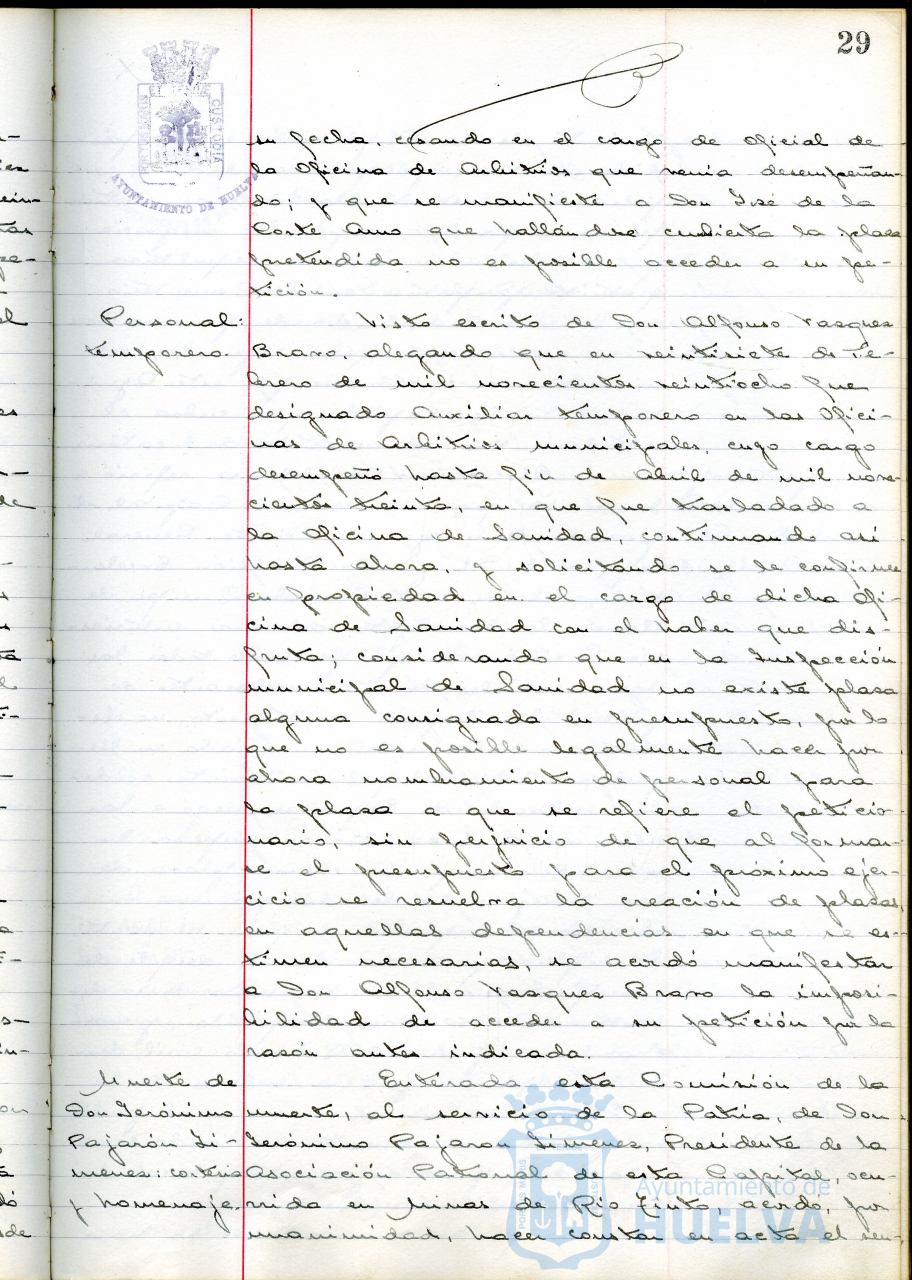 29
AYUNTAMIENTO DE HUELVA
su fecha, cesando en el cargo de Oficial de
la Oficina de Arbitrios que venia desempeñan-
do; y que se manifieste a Don José de la
Corte Amo que hallandose cubierta la plaza
pretendida no es posible acceder a su pe-
tición.
Personal:
temporero.
Visto escrito de Don Alfonso Vasques
Bravo, alegando que en veintisiete de Fe-
brero de mil novecientos veintiocho fue
designado Auxiliar temporero en las Ofici-
nas de Arbitrios municipales, cuyo cargo
desempeñó hasta fin de Abril de mil nove-
cientos treinta, en que fue trasladado a
la Oficina de Sanidad, continuando asi
hasta ahora, y solicitando se le confirme
en propiedad en el cargo de dicha Ofi-
cina de Sanidad con el haber que dis-
fruta; considerando que en la Inspección
municipal de Sanidad no existe plasa
alguna consignada en presupuesto, por lo
que no es posible legalmente hacer por
ahora nombramiento de personal para
la plaza a que se refiere el peticio-
nario, sin perjuicio de que al formar-
se el presupuesto para el próximo ejer-
cicio se resuelva la creación de plazas,
en aquellas dependencias en que se es-
timen necesarias, se acordó manifestar
a Don Alfonso Vasques Bravo la imposi-
bilidad de acceder a su petición por la
rasón antes indicada.
Muerte de
Don Jerónimo
Pajarón Ji-
menes: corteria
y homenaje.
Enterada esta Comisión de la
muerte, al servicio de la Patria, de Don
Jerónimo Pajaron Jimenes, Presidente de la
Asociación Patronal de esta Capital, ocu-
rrida en Minas de Rio Tinto, acordo, por
unanimidad, hacer constar en acta el sen-
Ayuntamiento de
HUELVA